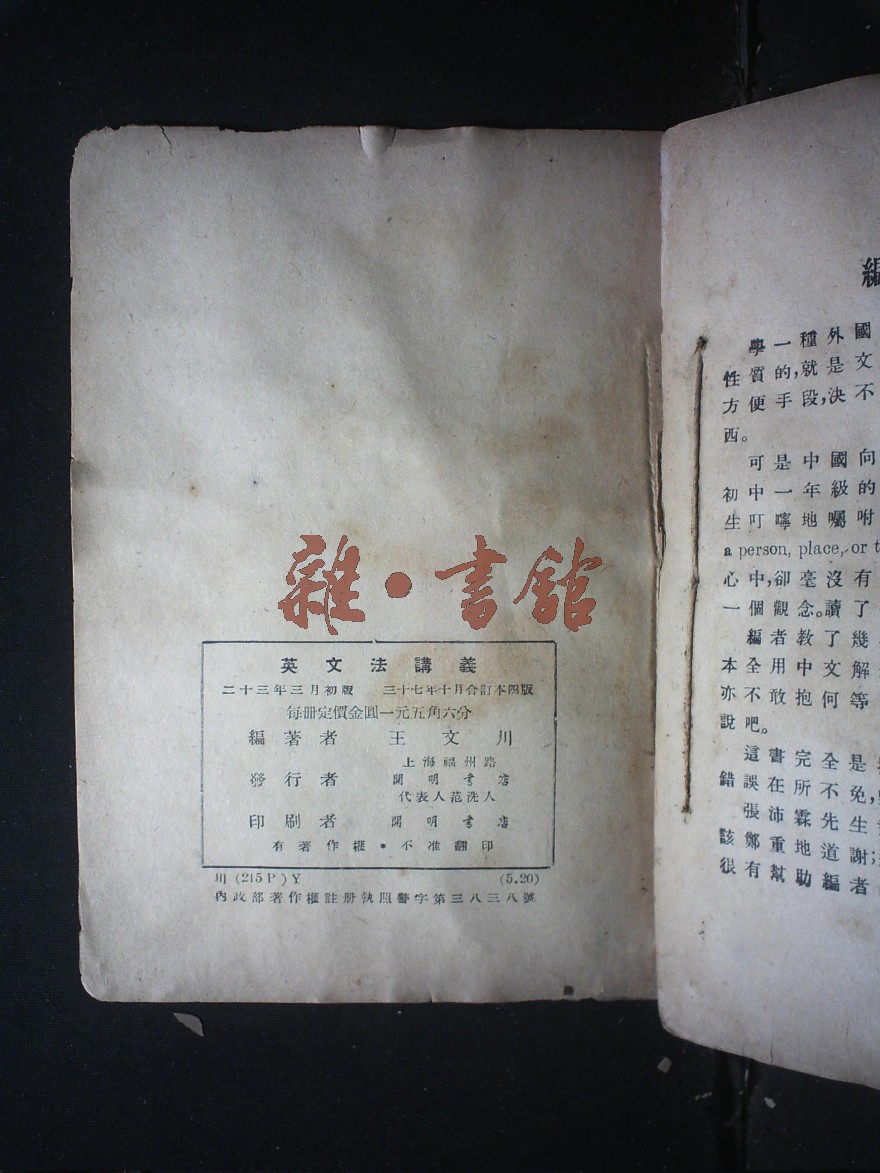 雜·書館
英文法講義
二十三年三月初版 三十七年十月合訂本四版
每册定價金圓一元五角六分
編著者 王文川
上海福州路
發行者 開明書店
代表人范洗人
印刷者 開明書店
有著作權·不准翻印
川(215P)Y (5.20)
內政部著作權註册執照警字第三八三八號
編
學一種外國
性質的,就是文
方便手段,決不
西。
可是中國向
初中一年級的
生叮嚀地囑咐
a person, place, or t
心中,卻毫沒有
一個觀念。讀了
編者教了幾
本全用中文解
亦不敢抱何等
說吧。
這書完全是
錯誤在所不免,
張沛霖先生
該鄭重地道謝;
很有幫助編者